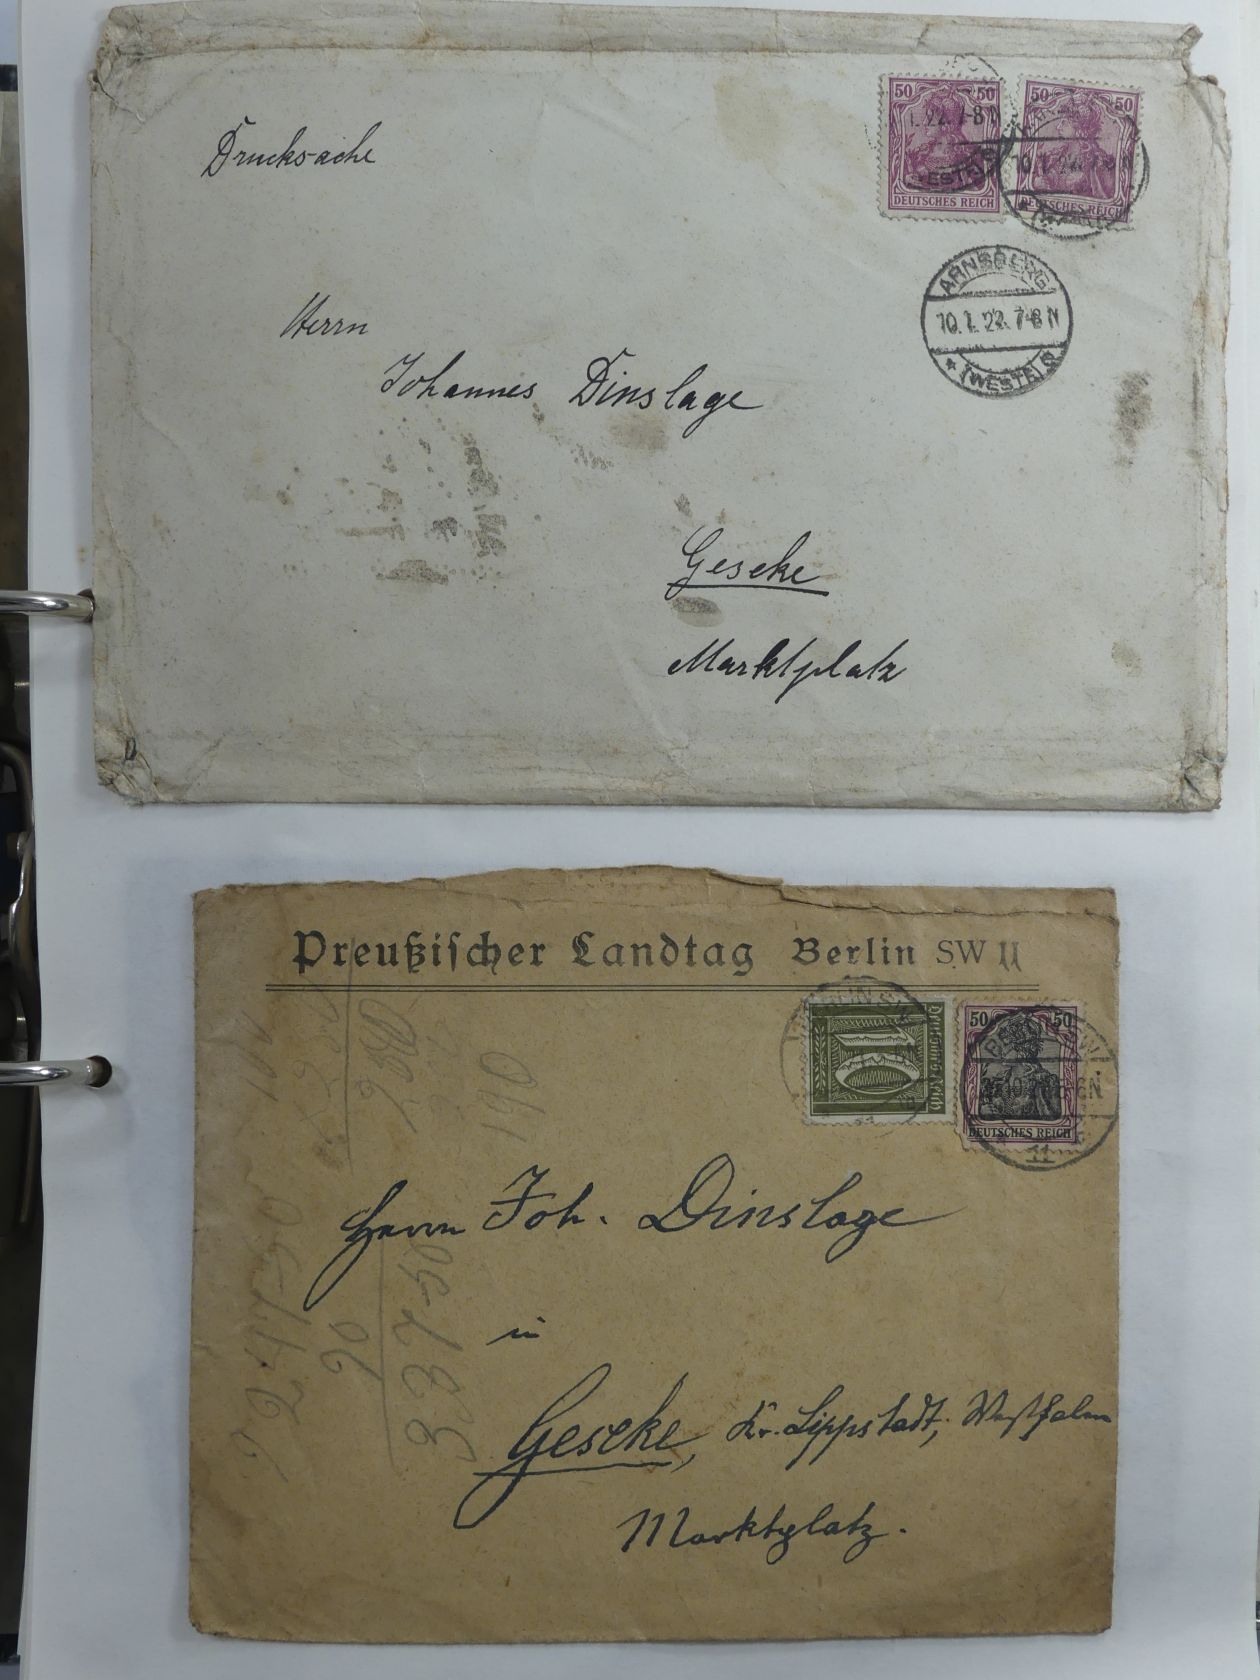 Drucksache
50 50
DEUTSCHES REICH
50 50
DEUTSCHES REICH
10.1.22.7-8N
ARNSBERG
10.1.22.7-8N
* (WESTF) *
Herrn
Johannes Dinslage
Geseke
Marktplatz
Preußischer Landtag Berlin SW 11
10
Deutsches Reich
50 50
DEUTSCHES REICH
BERLIN SW
11
1950
190
20
337-50
Herrn Joh. Dinslage
in
Geseke, Kr. Lippstadt, Westfalen
Marktplatz.